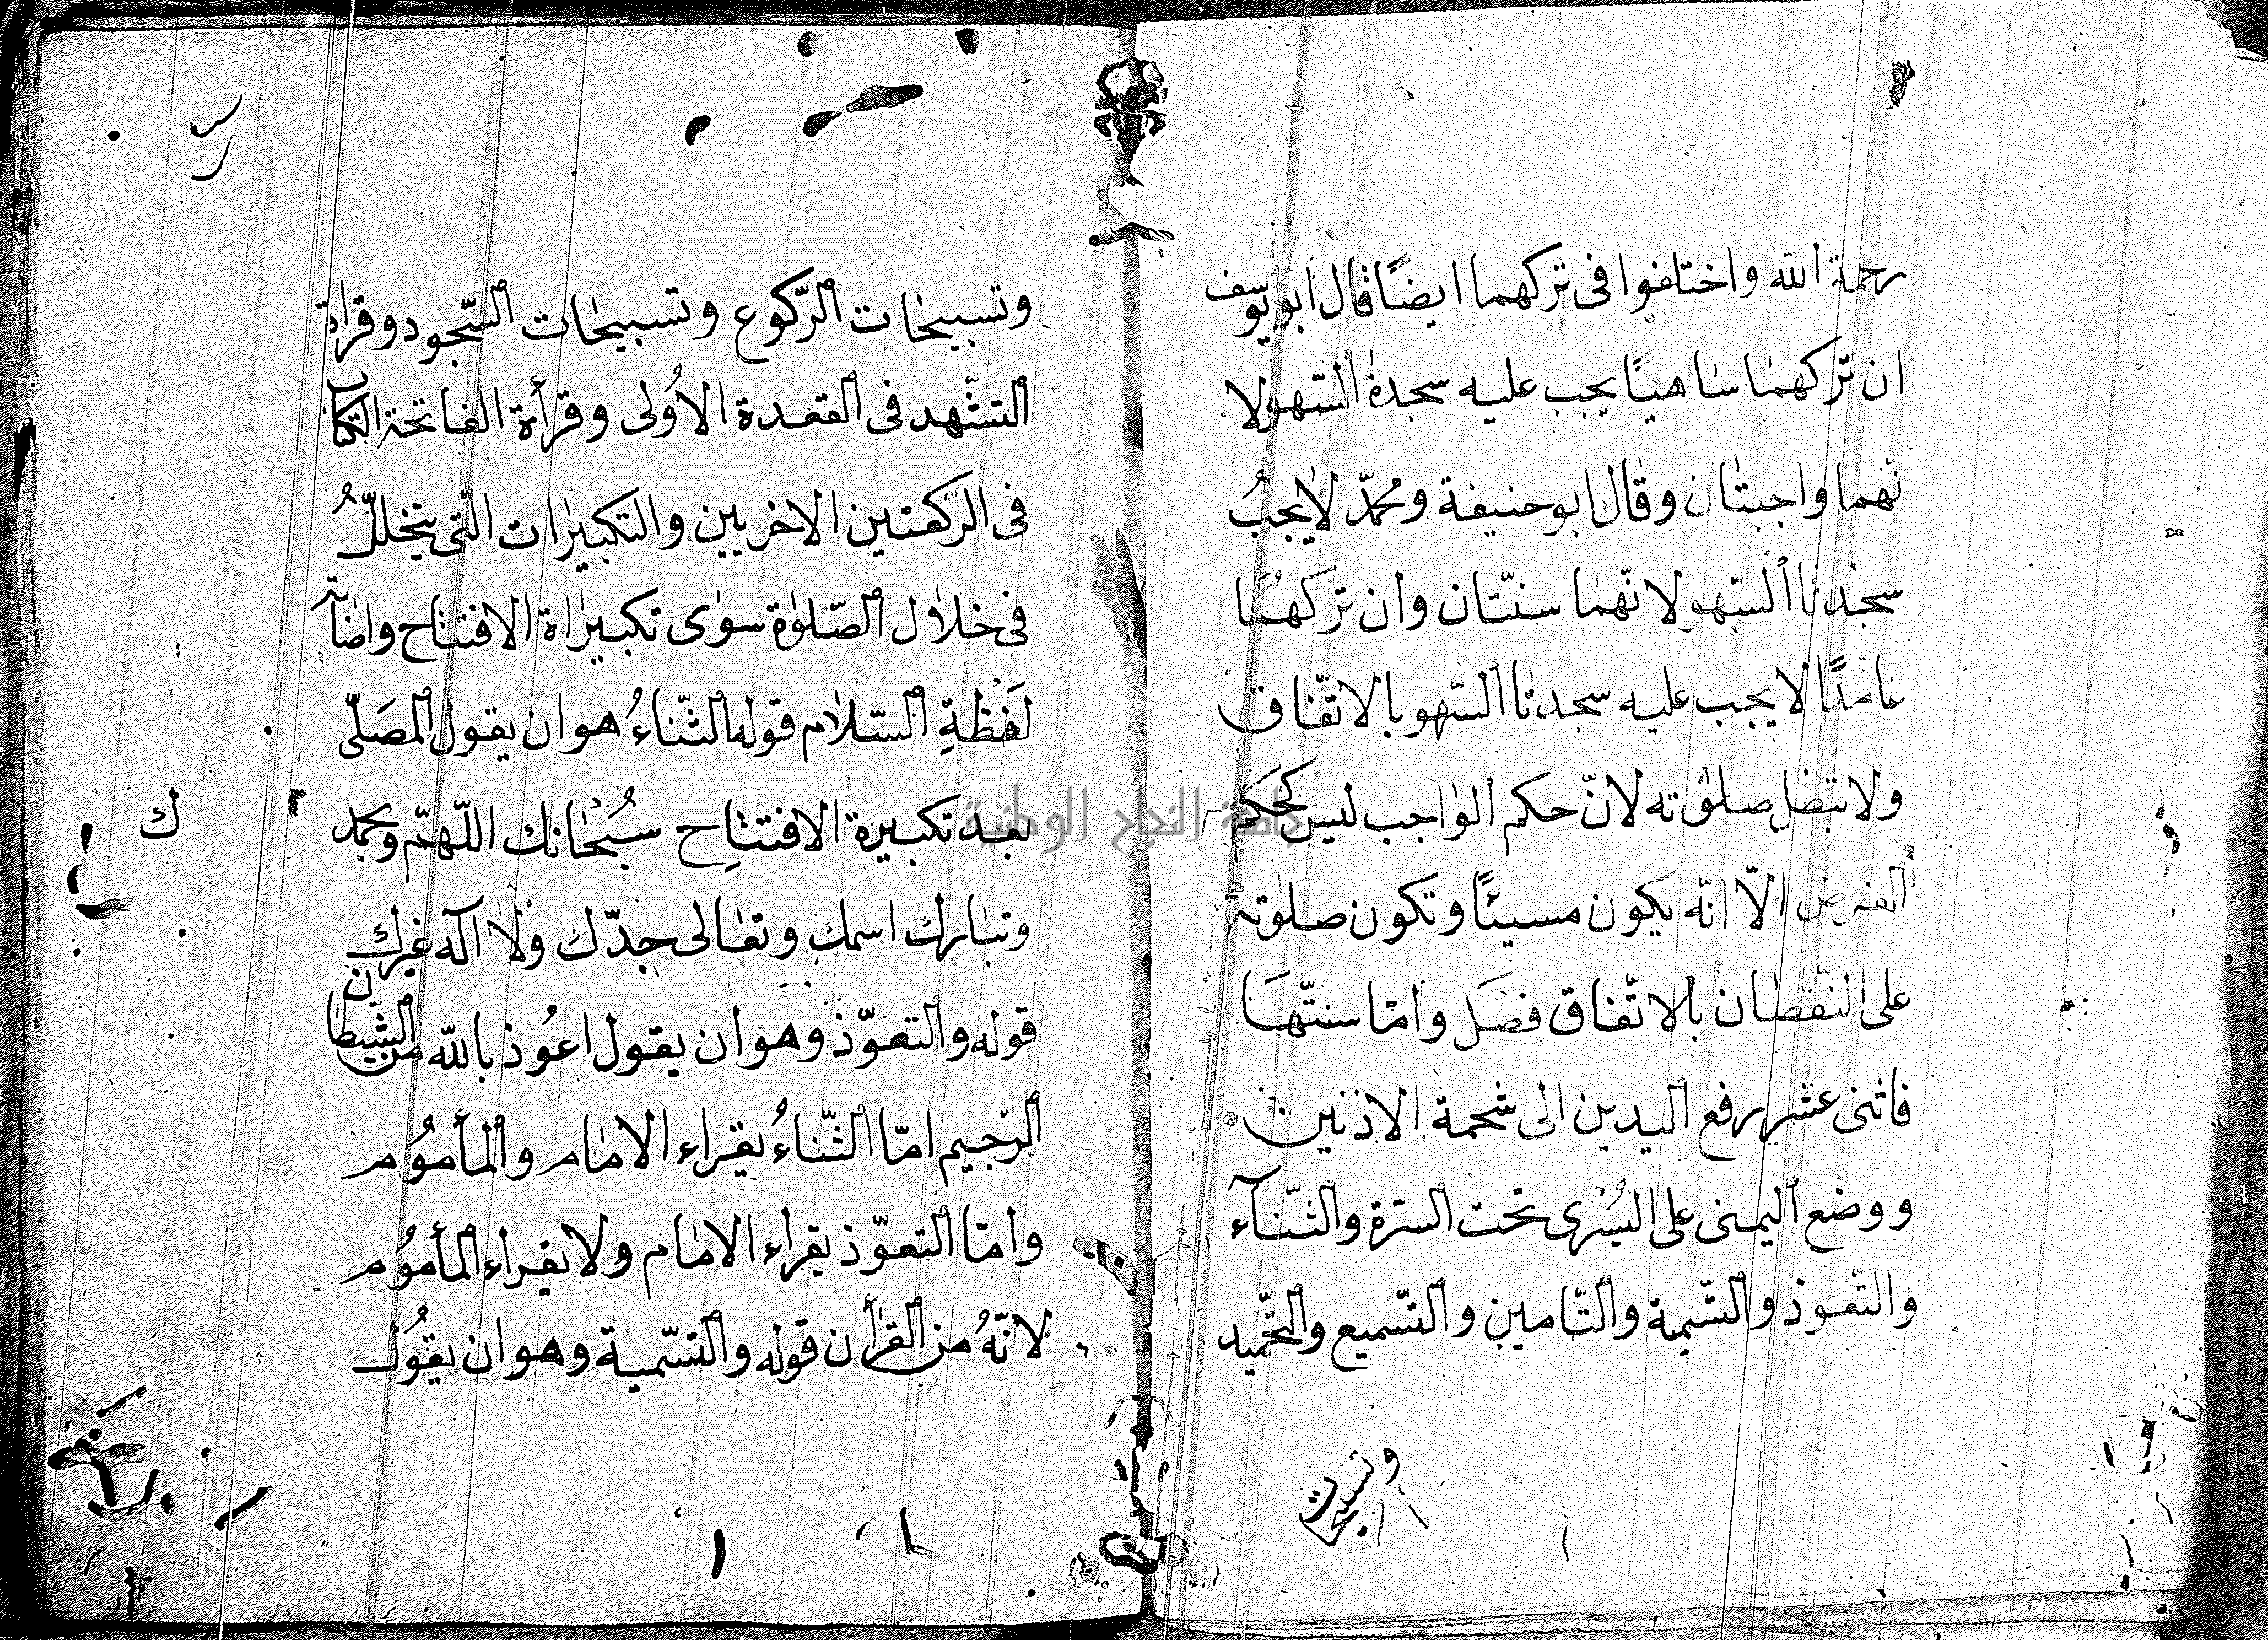 رحمة الله واختلفوا فى تركهما ايضًا قال ابو يوسف
ان تركهما ساهيًا يجب عليه سجدة السّهو لا
نّهما واجبتان وقال ابو حنيفة ومحمّد لا يجبُ
سجدتا السّهو لانّهما سنتّان وان تركهما
عامدًا لا يجب عليه سجدتا السّهو بالاتّفاق
ولا تبطل صلوٰته لانّ حكم الواجب ليس كحكم
الفرض الّا انّه يكون مسيئًا وتكون صلوٰته
على النّقصان بالاتّفاق فصل وامّا سنتّها
فاثنى عشر رفع اليدين الى شحمة الاذنين
ووضع اليمنى على اليُسْرى تحت السّرة والثّنآء
والتّعوذ والسّمية والتّامين والتّسميع والتّحميد
وتسبيحات
وتسبيحات الرّكوع وتسبيحات السّجود وقراة
التشّهد فى القعدة الاُولى وقرأة الفاتحة الكتاب
فى الرّكعتين الاخريين والتكبيرات التّى يتخلّلُ
فى خلال الصّلوٰة سوى تكبيراة الافتتاح واصابة
لَفْظةِ السّلام قوله الثّناءُ هو ان يقول المصَلّى
بعد تكبيرة الافتتاحِ سُبْحانك اللّهمّ وبحمد ك
وتبارك اسمك وتعالى جدّك ولا آله غيرك
قوله والتعوّذ وهو ان يقول اعُوذ بالله من الشّيطان
الرّجيم امّا الثّناءُ يقراء الامام والمأمُوم
وامّا التعوّذ يقراء الامام ولا يقراء المأمُوم
لانّهُ من القرأن قوله والتسّمية وهو ان يقُول
جامعة النجاح الوطنية